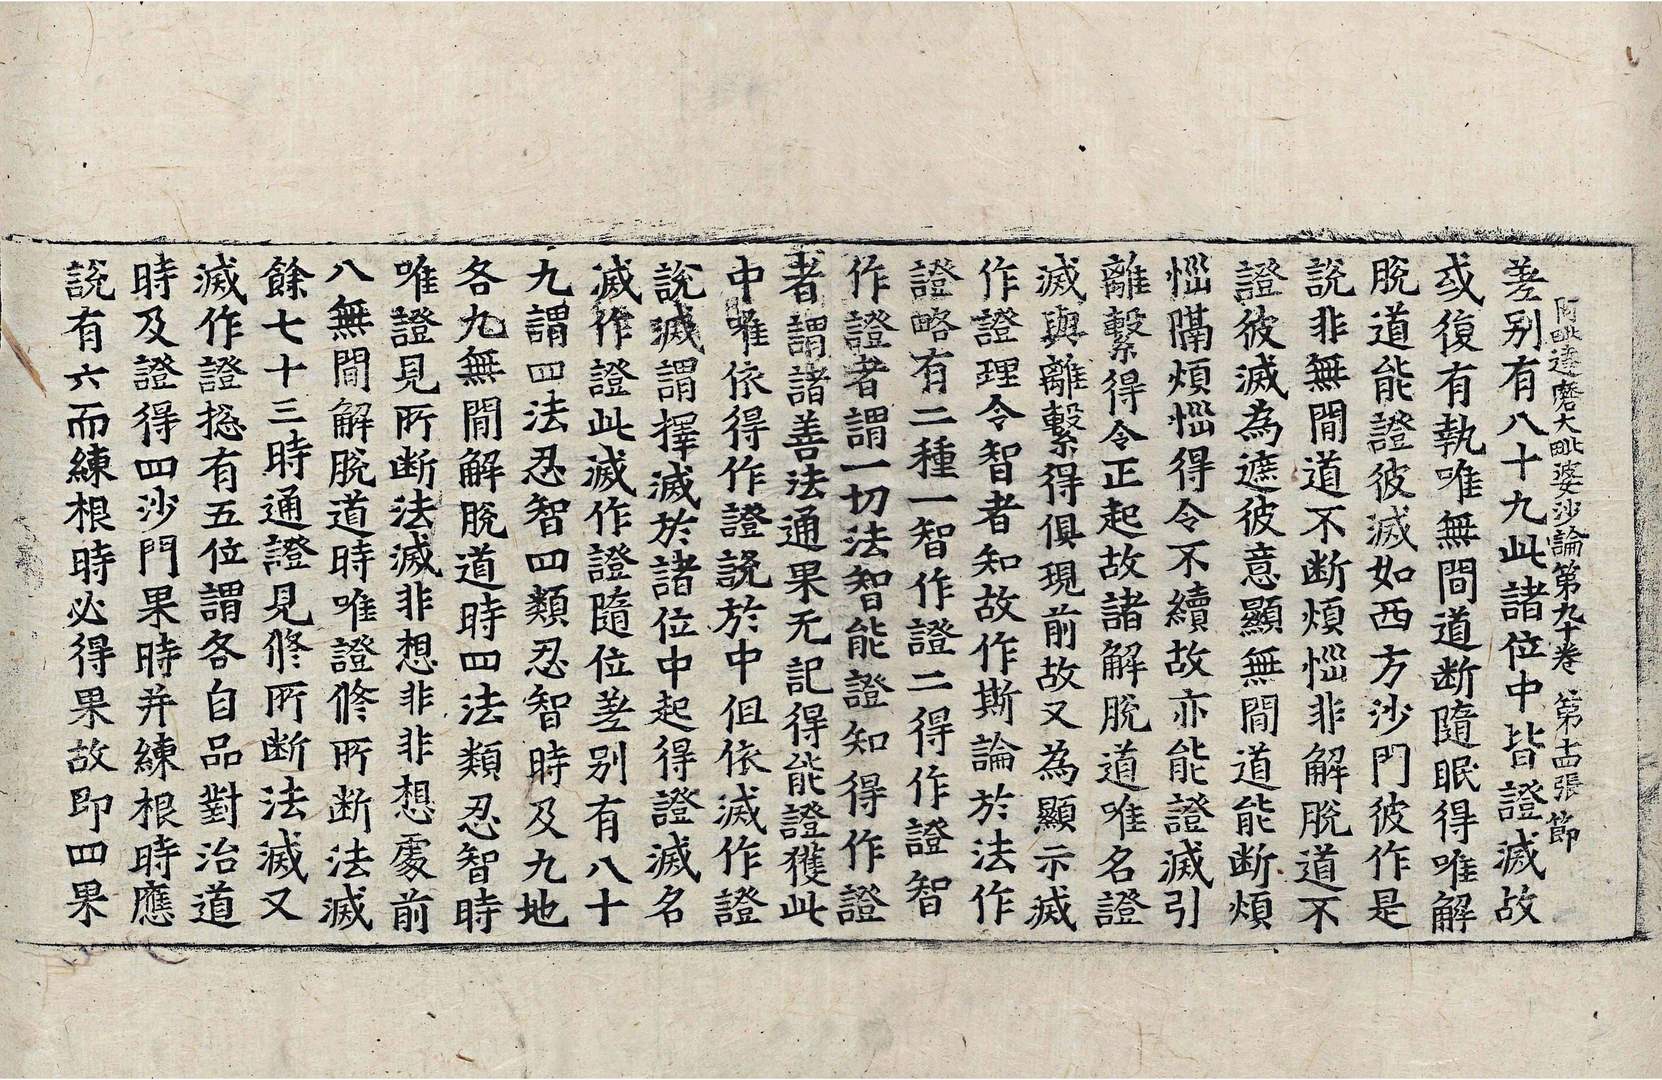 阿毗達磨大毗婆沙論第九十卷　第十五張　節
差别有八十九此諸位中皆證滅故
或復有執唯無間道断隨眠得唯解
脫道能證彼滅如西方沙門彼作是
說非無間道不断煩惱非解脫道不
證彼滅為遮彼意顯無間道能断煩
惱隔煩惱得令不續故亦能證滅引
離繫得令正起故諸解脫道唯名證
滅與離繫得俱現前故又為顯示滅
作證理令智者知故作斯論於法作
證略有二種一智作證二得作證智
作證者謂一切法智能證知得作證
者謂諸善法通果无記得能證獲此
中唯依得作證說於中但依滅作證
說滅謂擇滅於諸位中起得證滅名
滅作證此滅作證隨位差别有八十
九謂四法忍智四類忍智時及九地
各九無間解脫道時四法類忍智時
唯證見所断法滅非想非非想處前
八無間解脫道時唯證修所断法滅
餘七十三時通證見修所断法滅又
滅作證揔有五位謂各自品對治道
時及證得四沙門果時并練根時應
說有六而練根時必得果故即四果